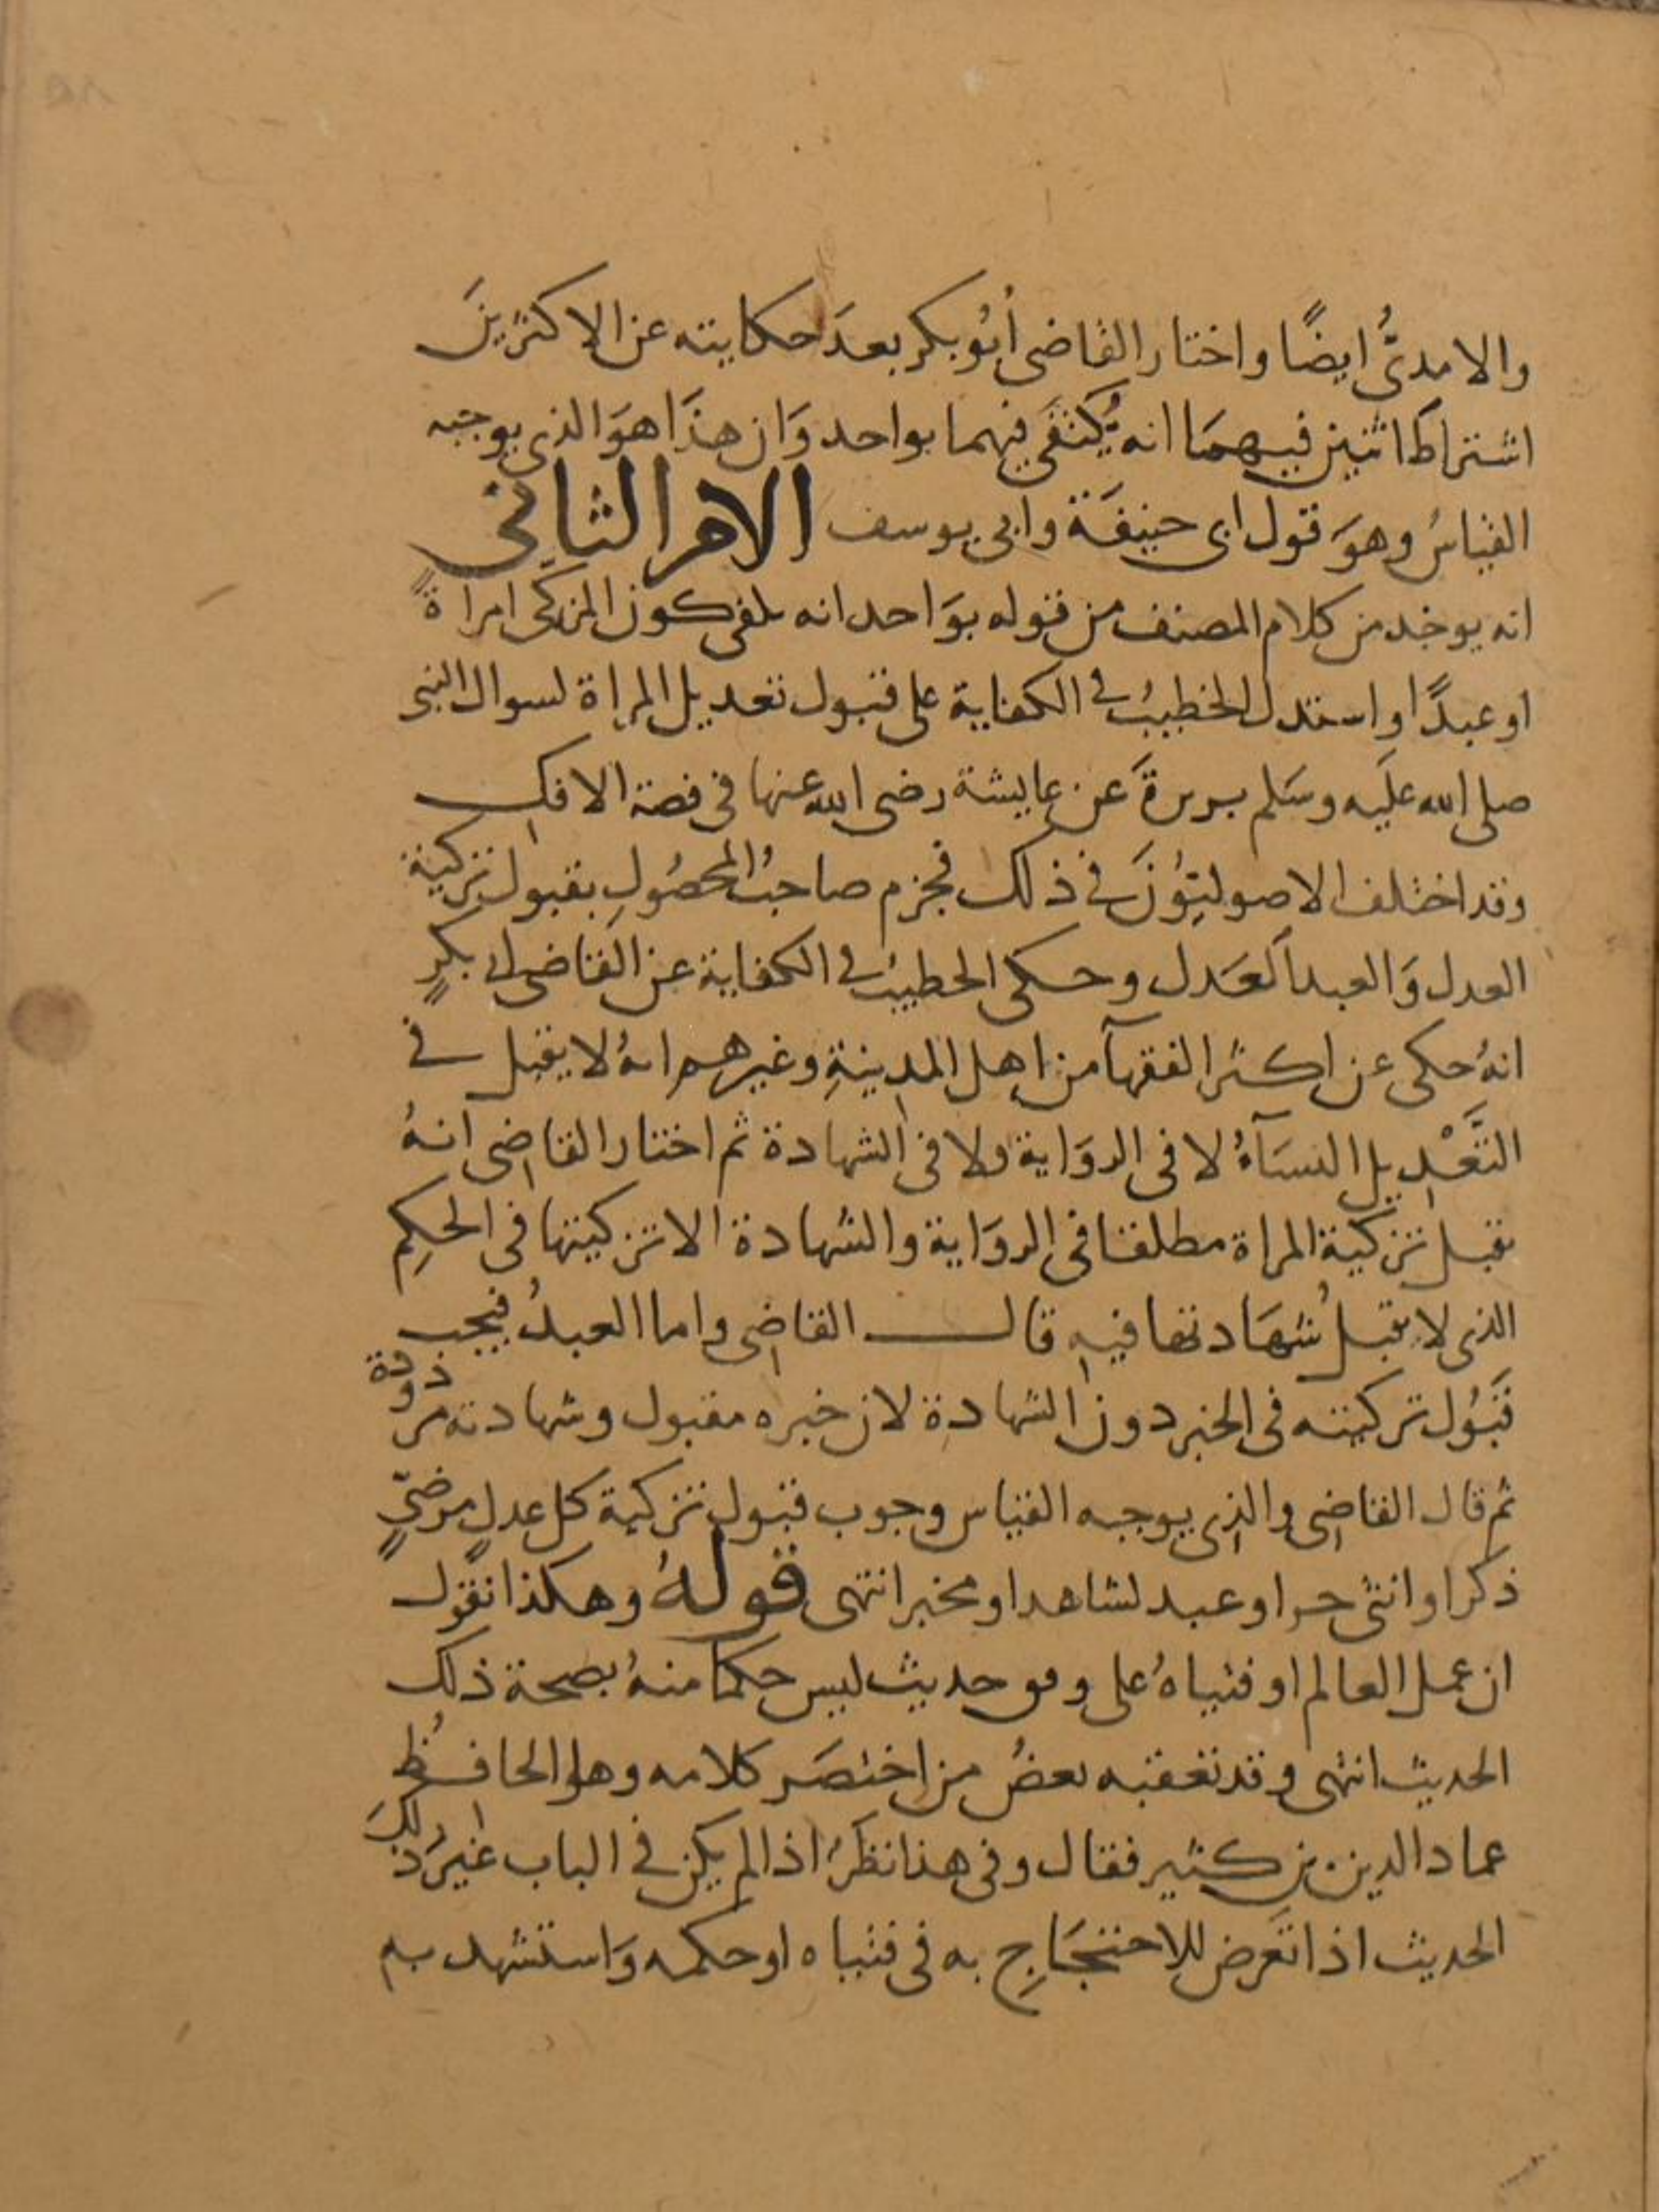 والامدىُّ ايضًا واختار القاضى أبُو بكر بعدَ حكايته عن الاكثرينَ
اشتراط اثنين فيهمَا انه يُكتفَى فيهما بواحد وَان هذَا هوَ الذى يوجبه
القياسُ وهوَ قول ابى حنيفَة وابى يوسف الامر الثانى
انه يوخذ من كلام المصنف من قوله بوَاحد انه يكفى كون المزكى امراةً
او عبدًا واستدل الخطيبُ فى الكفاية على قبول تعديل المراة لسوال النبى
صلى الله عليَه وسَلم بريرةَ عن عايشة رضى الله عنها فى قصة الافك
وقد اختلف الاصوليّوُنَ فى ذلك فجزم صاحبُ المحصُولِ بقبول تزكية
العدل وَالعبد العَدل وحكى الخطيبُ فى الكفاية عن القاضى ابى بكرٍ
انهُ حكى عن اكثر الفقهآ من اهل المدينةِ وغيرهم انهُ لا يقبل فى
التَّعْدِيل النسَآءُ لا فى الروَاية ولا فى الشهادة ثم اختار القاضى انهُ
تقبل تزكية المراة مطلقا فى الروَاية والشهادة الا تزكيتها فى الحكِم
الذى لا تقبلُ شهَادتها فيه قال القاضى واما العبدُ فيجب
قبَوُل تزكيته فى الخبر دون الشهادة لان خبره مقبول وشهادته مردودة
ثم قال القاضى والذى يوجبه القياس وجوب قبول تزكية كل عدلٍ مرضىٍّ
ذكر او انثى حر او عبد لشاهد او مخبر انتهى قولهُ وهكذا نقول
ان عمل العالم او فتياهُ على وفق حديث ليس حكمًا منهُ بصحة ذلك
الحديث انتهى وقد تعقبه بعضُ من اختصَر كلامه وهو الحافظُ
عماد الدين بن كثير فقال وفى هذا نظرُ اذا لم يكن فى الباب غيرُ ذلكَ
الحديث اذا تعَرض للاحتجَاجِ به فى فتياه او حكمه وَاستشهد به